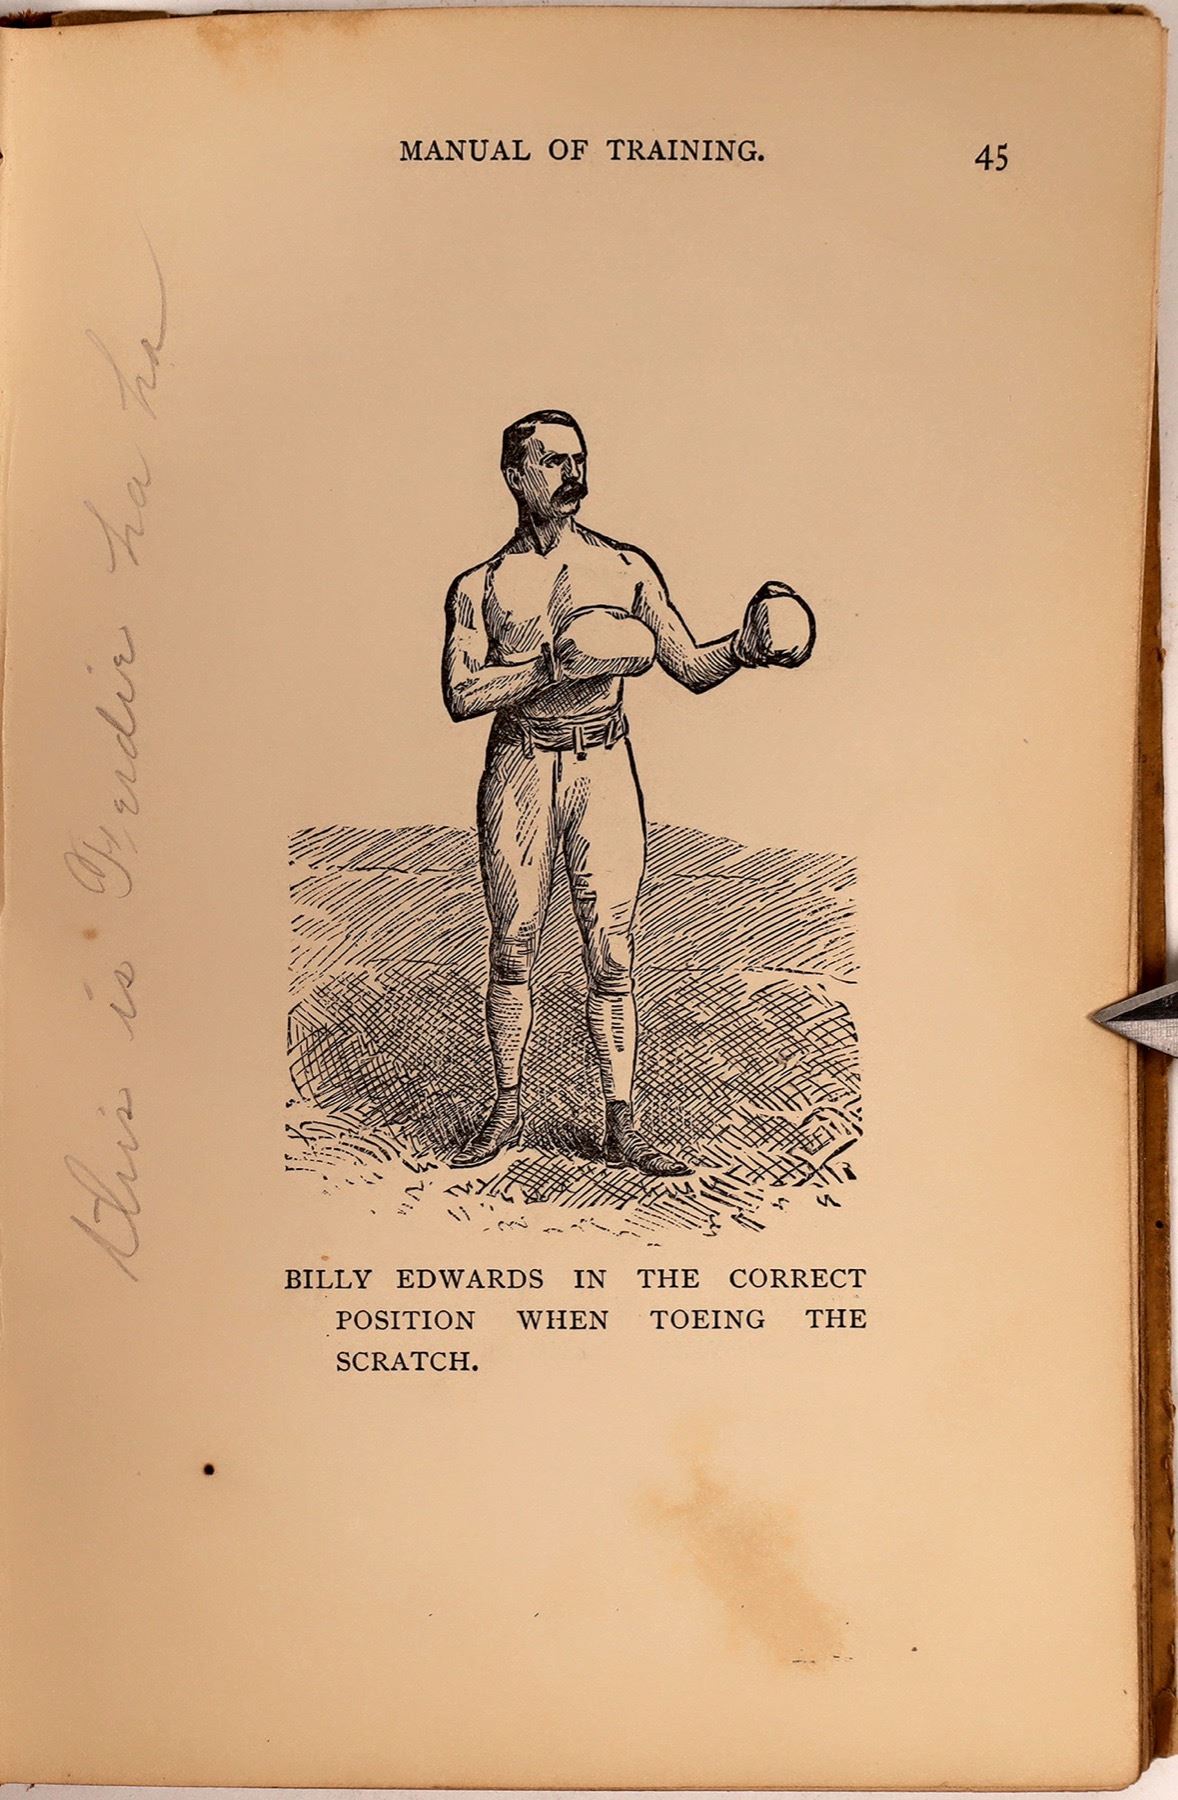 MANUAL OF TRAINING.
45
this is Ferdie ha ha
BILLY EDWARDS IN THE CORRECT
POSITION WHEN TOEING THE
SCRATCH.